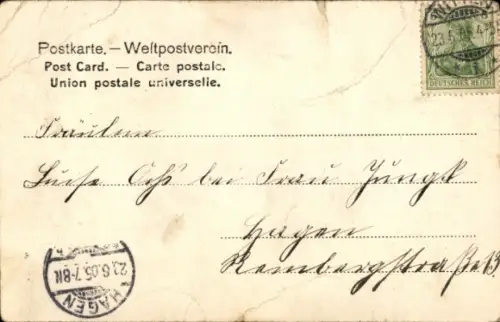 Postkarte. – Weltpostverein.
Post Card. — Carte postale.
Union postale universelle.
DEUTSCHES REICH
Fräulein
Luise Ochs bei Frau Jungk
Hagen
Rembergstraße 13
23.6.05.7-8N
HAGEN